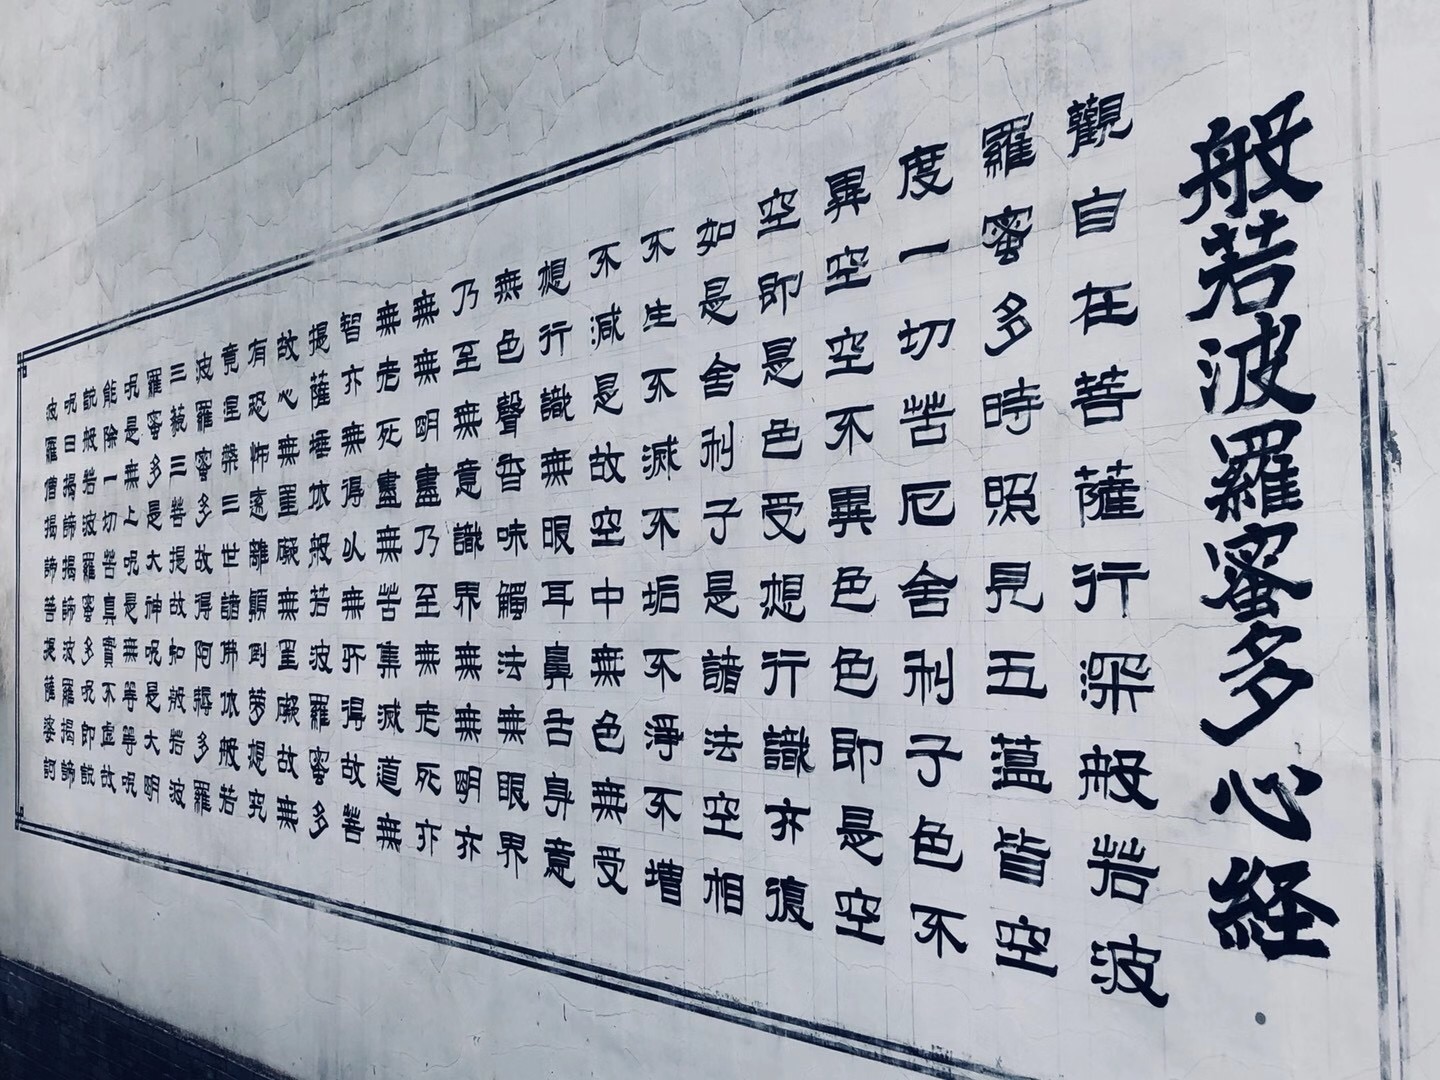 般若波羅蜜多心経
觀自在菩薩行深般若波
羅蜜多時照見五蘊皆空
度一切苦厄舍利子色不
異空空不異色色即是空
空即是色受想行識亦復
如是舍利子是諸法空相
不生不滅不垢不淨不增
不減是故空中無色無受
想行識無眼耳鼻舌身意
無色聲香味觸法無眼界
乃至無意識界無無明亦
無無明盡乃至無老死亦
無老死盡無苦集滅道無
智亦無得以無所得故菩
提薩埵依般若波羅蜜多
故心無罣礙無罣礙故無
有恐怖遠離顛倒夢想究
竟涅槃三世諸佛依般若
波羅蜜多故得阿耨多羅
三藐三菩提故知般若波
羅蜜多是大神呪是大明
呪是無上呪是無等等呪
能除一切苦真實不虛故
說般若波羅蜜多呪即說
呪曰揭諦揭諦波羅揭諦
波羅僧揭諦菩提薩婆訶